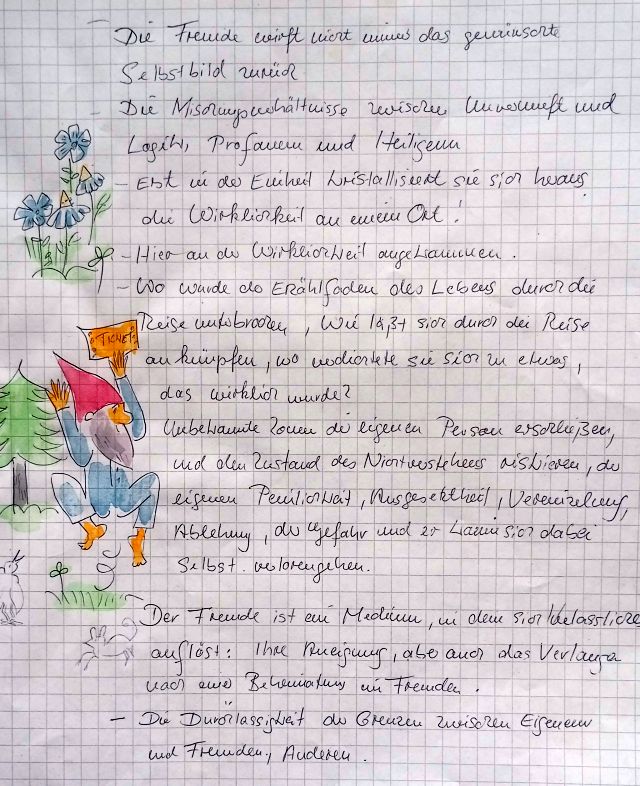 Die Fremde wirft nicht immer das gewünschte
Selbstbild zurück
- Die Mischungsverhältnisse zwischen Unvernunft und
Logik, Profanem und Heiligem
- Erst in der Einheit kristallisiert sie sich heraus
die Wirklichkeit an einem Ort!
- Hier an der Wirklichkeit angekommen.
- Wo wurde der Erzählfaden des Lebens durch die
TICKET
Reise unterbrochen, wie läßt sich durch die Reise
anknüpfen, wo verdichtete sie sich zu etwas,
das wirklich wurde?
Unbekannte Zonen der eigenen Person erschließen,
und den Zustand des Nichtverstehens riskieren, der
eigenen Peinlichkeit, Ausgesetztheit, Vereinzelung,
Ablehnung, der Gefahr und er kann sich dabei
Selbst verlorengehen.
Der Fremde ist ein Medium, in dem sich Verlassliches
auflöst: Ihre Aneignung, aber auch das Verlangen
nach einer Beheimatung im Fremden.
- Die Durchlässigkeit der Grenzen zwischen Eigenem
und Fremden, Anderen.